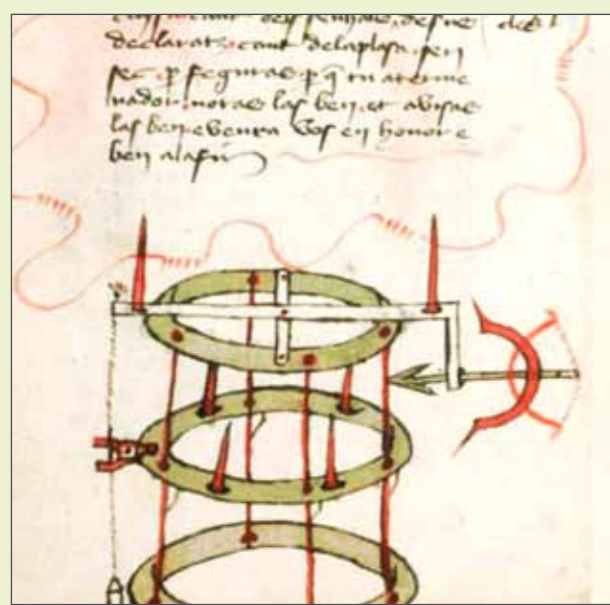 declaratz cant de la plasa seri
fec p feguras p q tu aterme
nador notas las ben et avisas
las ben e venra vos en honor e
ben ala fin